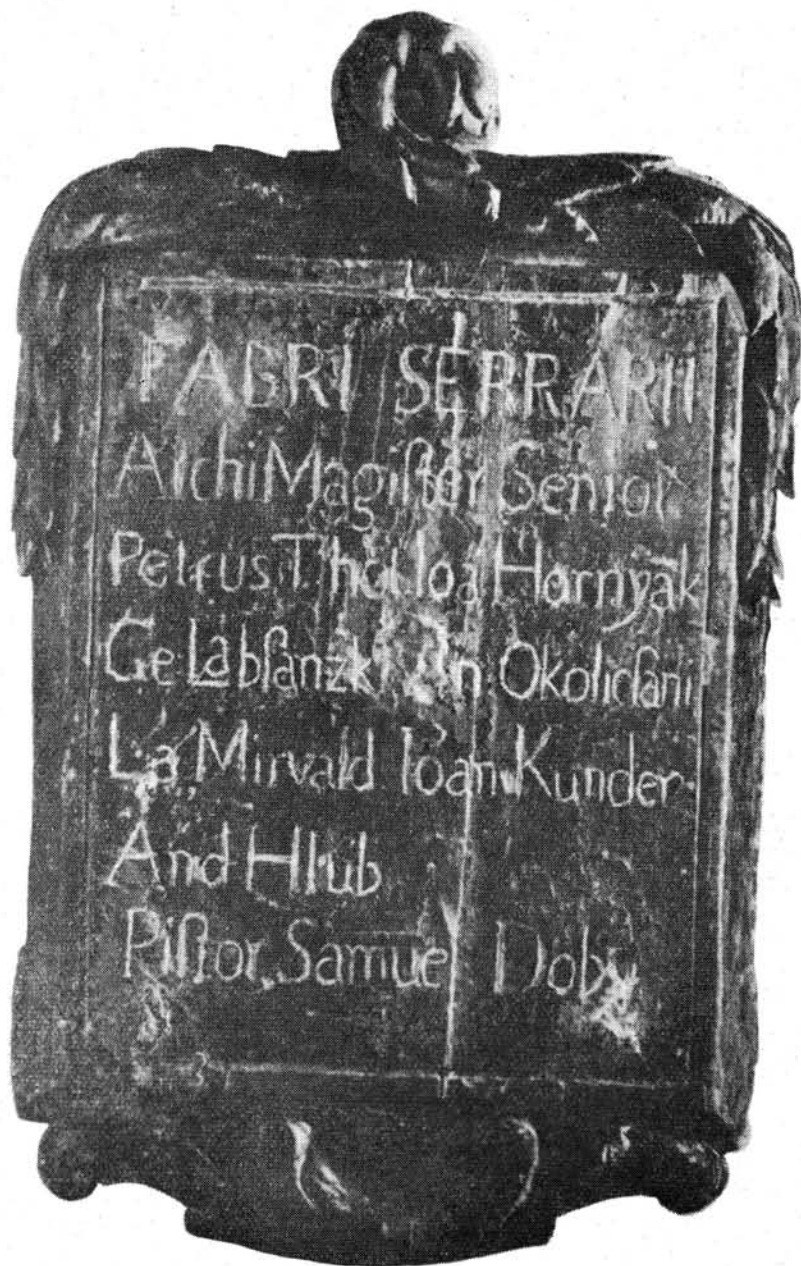 FABRI SERRARII
ArchiMagiſter Senior
Petrus Thot Ioa Hornyak
Ge Labſanzki An Okolicſani
La Mirvald Ioan Kunder
And Hlub
Piſtor Samuel Doby